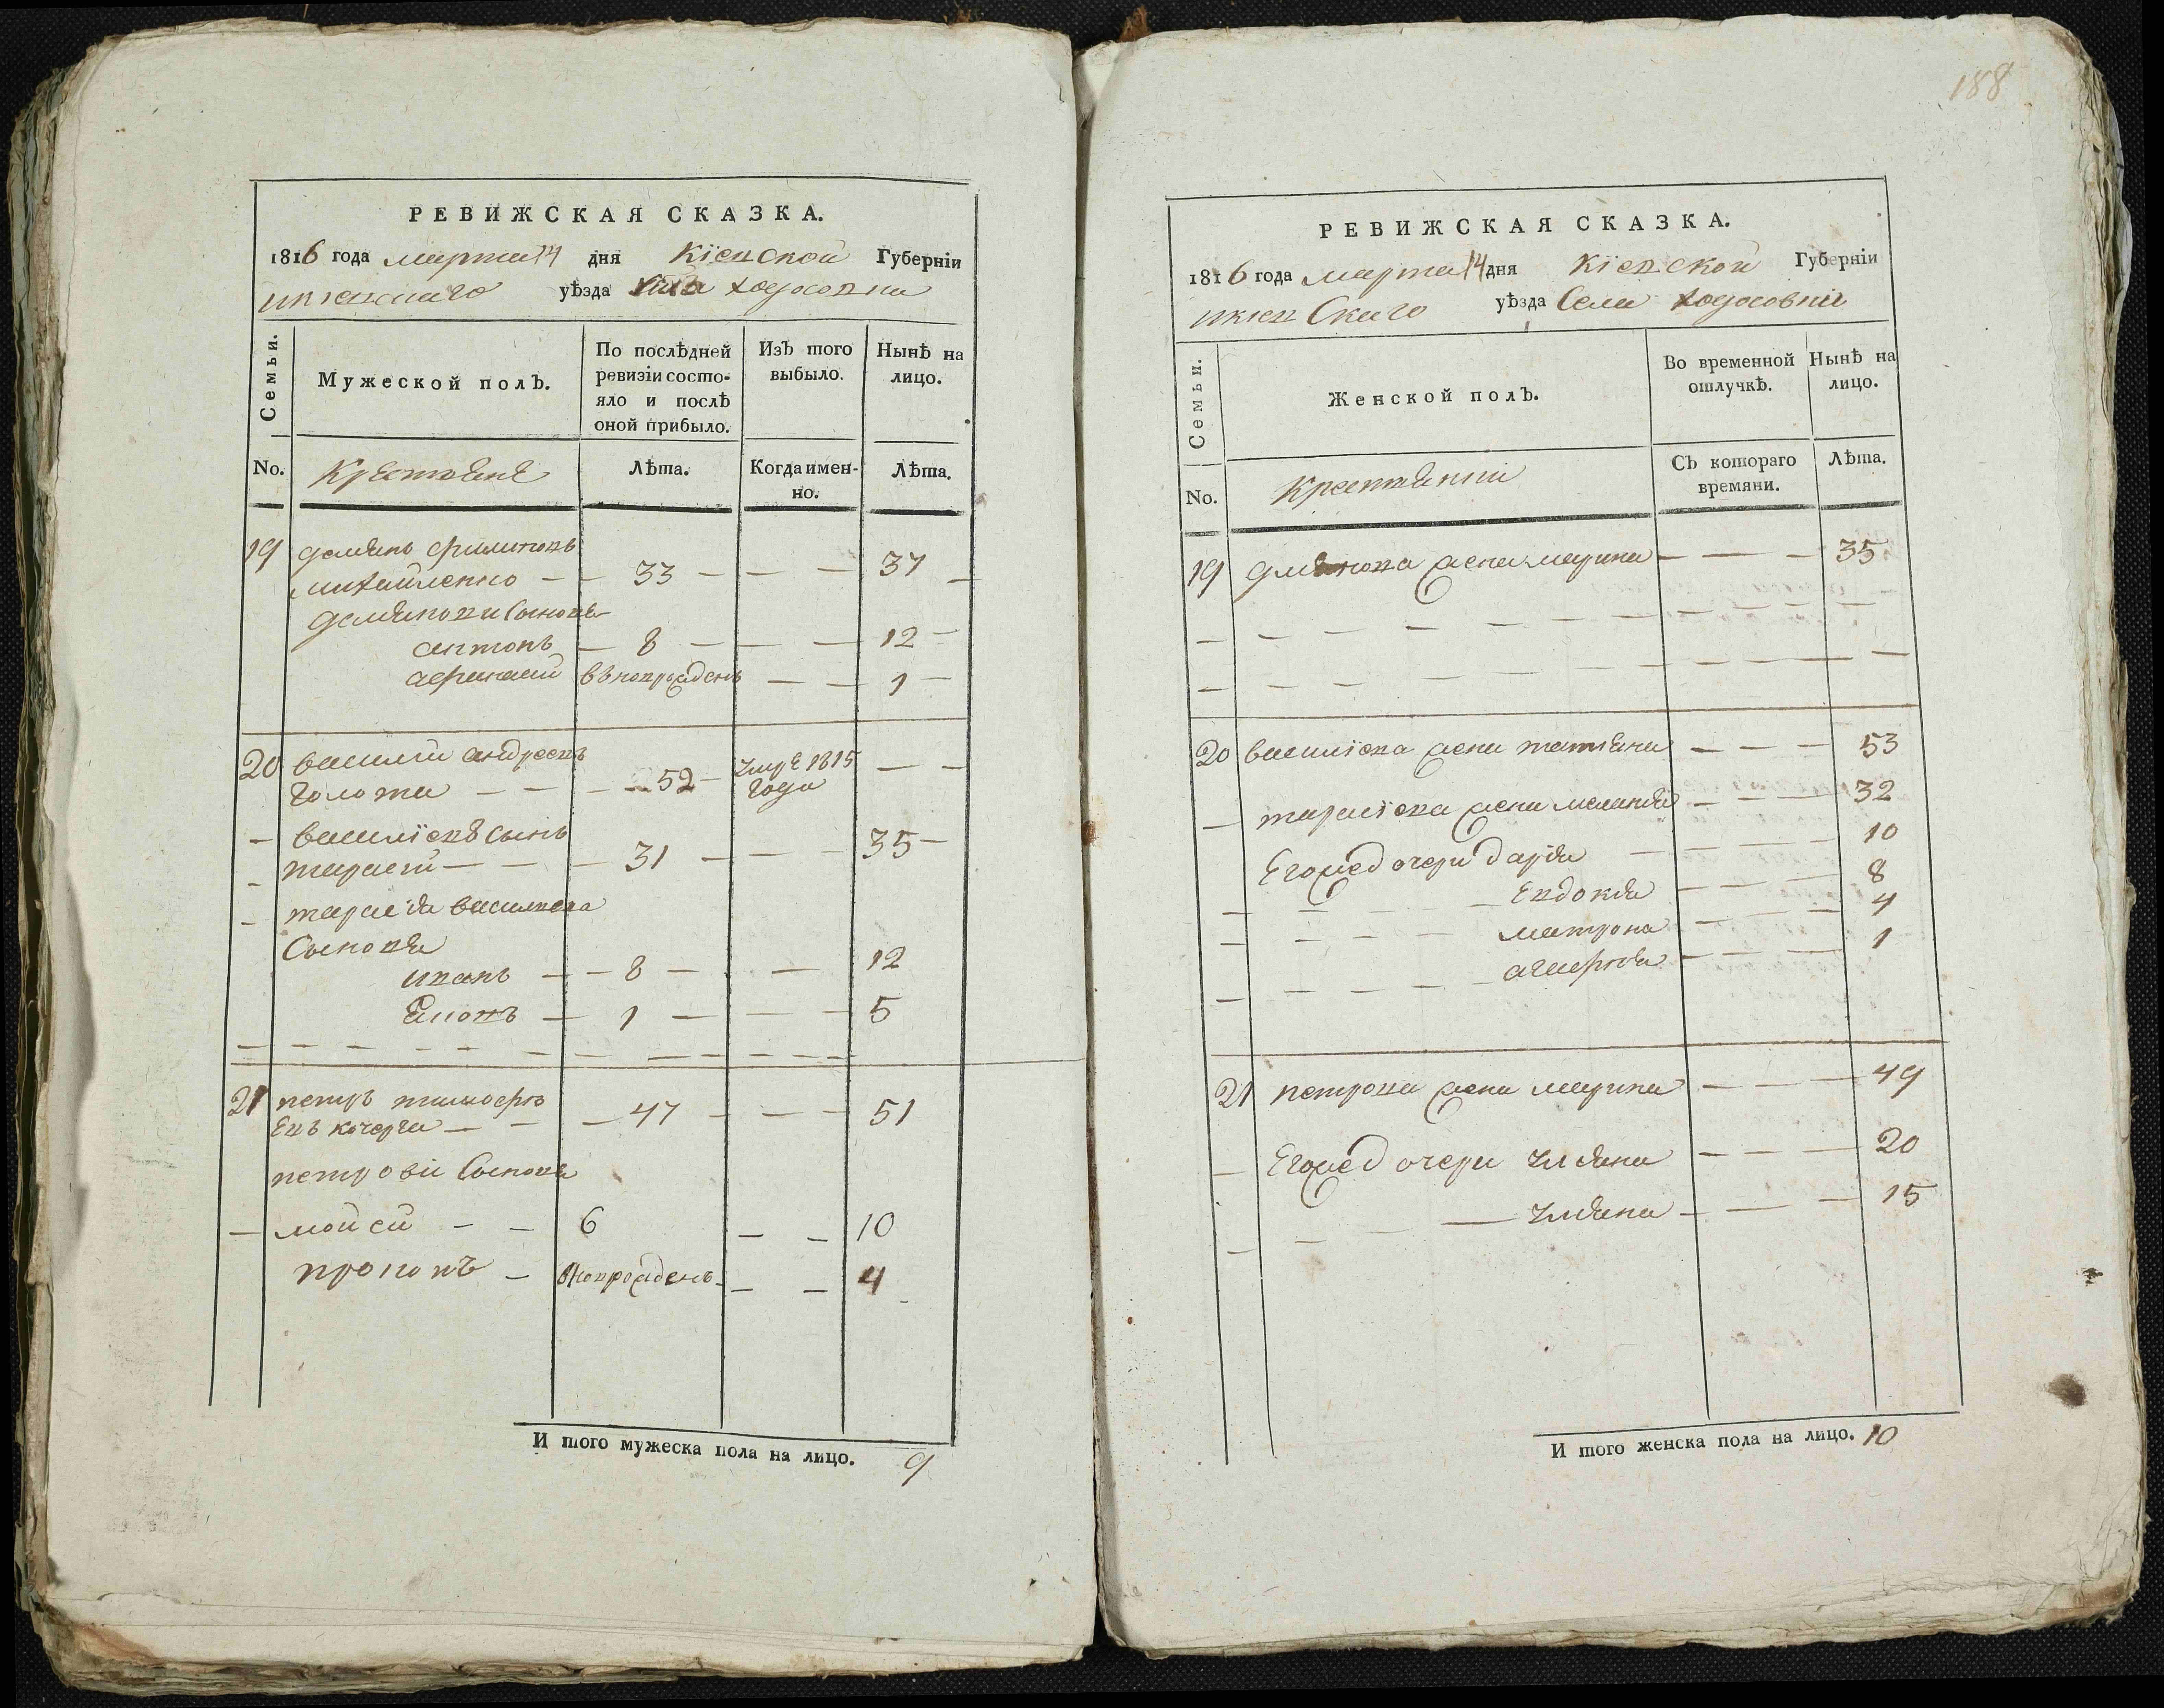 188
РЕВИЖСКАЯ СКАЗКА.
1816 года марта 14 дня Кіевской Губерніи
икиевскаго уѣзда села ходосовки
Семьи.
Мужеской полЪ.
По послѣдней ревизіи состо-
яло и послѣ оной прибыло.
ИзЪ того выбыло.
Нынѣ на лицо.
No.
Крестьяне
Лѣта.
Когда имен-
но.
Лѣта.
19 демянъ филиповъ
михайленко — — 33 — — — 37 —
демянови Сыновя
антонъ — 8 — — — 12 —
афанасий вьновьрожденъ — — 1 —
20 василий андреевъ
голота — — — 52 — умре 1815 года — —
— василіевъ сынъ
— тарасий — — — 31 — — — 35 —
— тарасія василиева
Сыновя
иванъ — — 8 — — 12
— 1 — — — 5
21 петръ тимофѣ
евъ кочерга — — — 47 — — — 51
петрови Сыновя
— мойсей — — 6 — — 10
прокопъ — вновьрожденъ — — — 4
И того мужеска пола на лицо. 9
РЕВИЖСКАЯ СКАЗКА.
1816 года марта 14 дня Кіевской Губерніи
икиевСкаго уѣзда Села ходосовки
Семьи.
Женской полЪ.
Во временной отлучкѣ.
Нынѣ на лицо.
No.
Крестянки
СЪ котораго времяни.
Лѣта.
19 дмянова жена марина — — — 35
20 василіева жена татияна — — — 53
— тарасіева жена меланія — — — 32
Егожедочери дарія — — — — 10
— — — — — Евдокія — — — 8
— — — — матрона — — — 4
— — — — — агафія — — — 1
21 петрова жена марина — — — 49
— Егожедочери улияна — — — 20
— — — — — уляна — — — 15
И того женска пола на лицо. 10